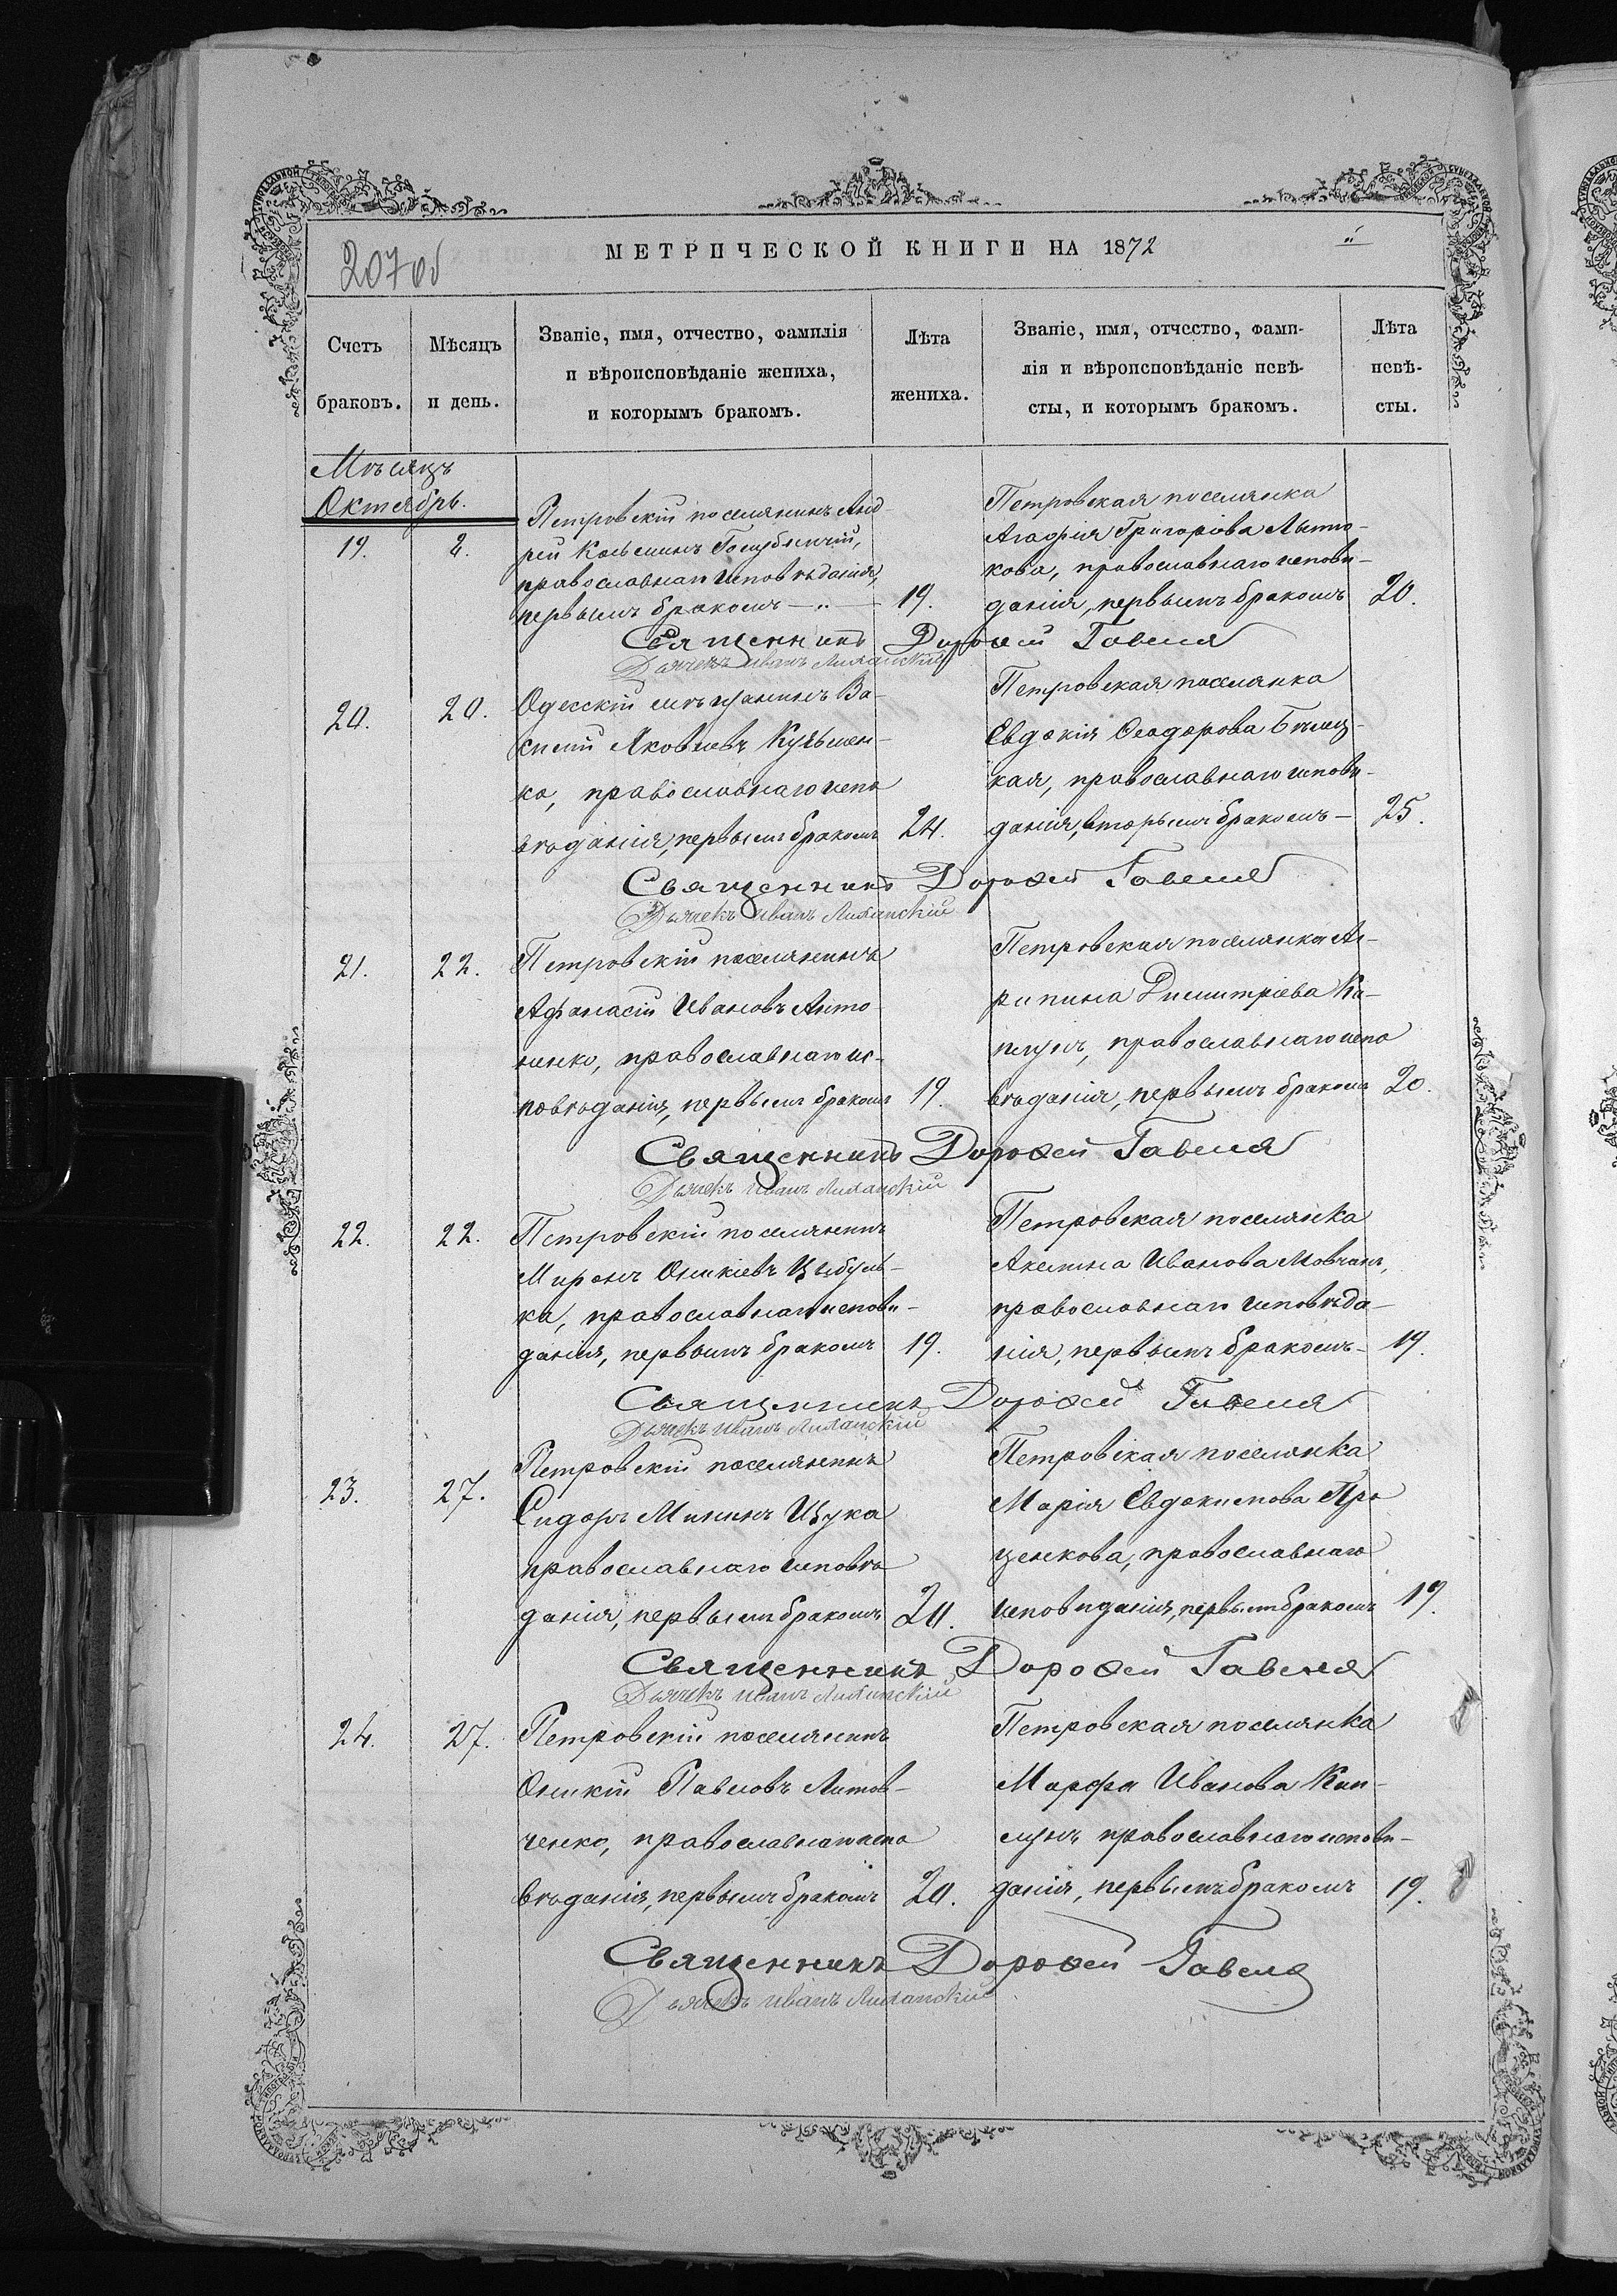 207 об
МЕТРИЧЕСКОЙ КНИГИ НА 1872
Счетъ браковъ.
Мѣсяцъ и день.
Званіе, имя, отчество, фамилія
и вѣроисповѣданіе жениха,
и которымъ бракомъ.
Лѣта жениха.
Званіе, имя, отчество, фами-
лія и вѣроисповѣданіе невѣ-
сты, и которымъ бракомъ.
Лѣта невѣ-
сты.
Мѣсяцъ
Октябрь.
19. 2.
Петровскій поселянинъ Анд-
рей Косьминъ Голубничій,
православнаго исповѣданія,
первымъ бракомъ — „ — 19.
Петровская поселянка
Агафія Григоріева Лытко-
кова, православнаго испови-
данія, первымъ бракомъ 20.
Священникъ Дорофей Гавеля
Дьячекъ Иванъ Лиханскій
20. 20.
Одесскій мѣщанинъ Ва-
силій Яковлевъ Кузьмен-
ко, православнаго испо
вѣданія, первымъ бракомъ 24.
Петровская поселянка
Евдокія Ѳеодорова Билец-
кая, православнаго испови-
данія, вторымъ бракомъ — 25.
Священникъ Дороѳей Гавеля
Дьячекъ Иванъ Лиханскій
21. 22.
Петровскій поселянинъ
Афанасій Ивановъ Анто-
ненко, православнаго ис-
повѣданія, первымъ бракомъ 19.
Петровская поселянка Аг-
рипина Димитріева Ка-
плунъ, православнаго испо
вѣданія, первымъ бракомъ 20.
Священникъ Дороѳей Гавеля
Дьячекъ Иванъ Лиханскій
22. 22.
Петровскій поселянинъ
Миронъ Оникіевъ Цыбуль-
ка, православнаго испови-
данія, первымъ бракомъ 19.
Петровская поселянка
Акилина Иванова Мовчанъ,
православнаго исповѣда-
нія, первымъ бракомъ — 19.
Священникъ Дороѳей Гавеля
Дьячекъ Иванъ Лиханскій
23. 27.
Петровскій поселянинъ
Сидоръ Мининъ Щука
православнаго исповѣ
данія, первымъ бракомъ 20.
Петровская поселянка
Марія Евдокимова Про
ценкова, православнаго
исповиданія, первымъ бракомъ 19.
Священникъ Дороѳей Гавеля
Дьячекъ Иванъ Лиханскій
24. 27.
Петровскій поселянинъ
Оникій Павловъ Литов-
ченко, православнаго испо
вѣданія, первымъ бракомъ 20.
Петровская поселянка
Марфа Иванова Кап-
лунъ православнаго испови-
данія, первымъ бракомъ 19.
Священникъ Дороѳей Гавеля
Дьячекъ Иванъ Лиханскій